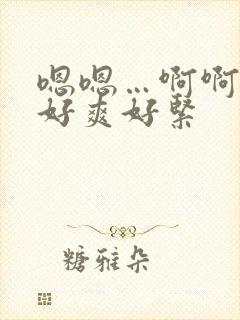 嗯嗯…啊啊
好爽好緊
糖雅朵